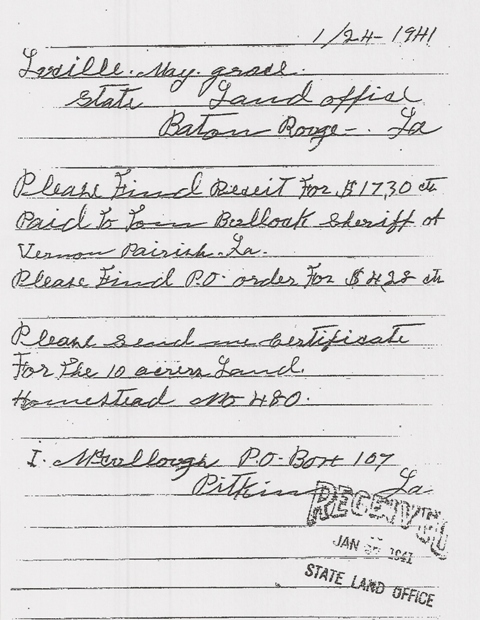 1/24-1941
Lucille. May. grace.
State Land office
Baton Rouge-. La
Please Find Reseit For $17,30 cts
Paid to Tom Bullock Sheriff of
Vernon Pairish. La.
Please Find P.O. order For $4.28 cts
Please send me Certificate
For the 10 acres Land.
Homestead No 480.
I. McCullough P.O. Box 107
Pitkin La
RECEIVED
JAN 1941
STATE LAND OFFICE